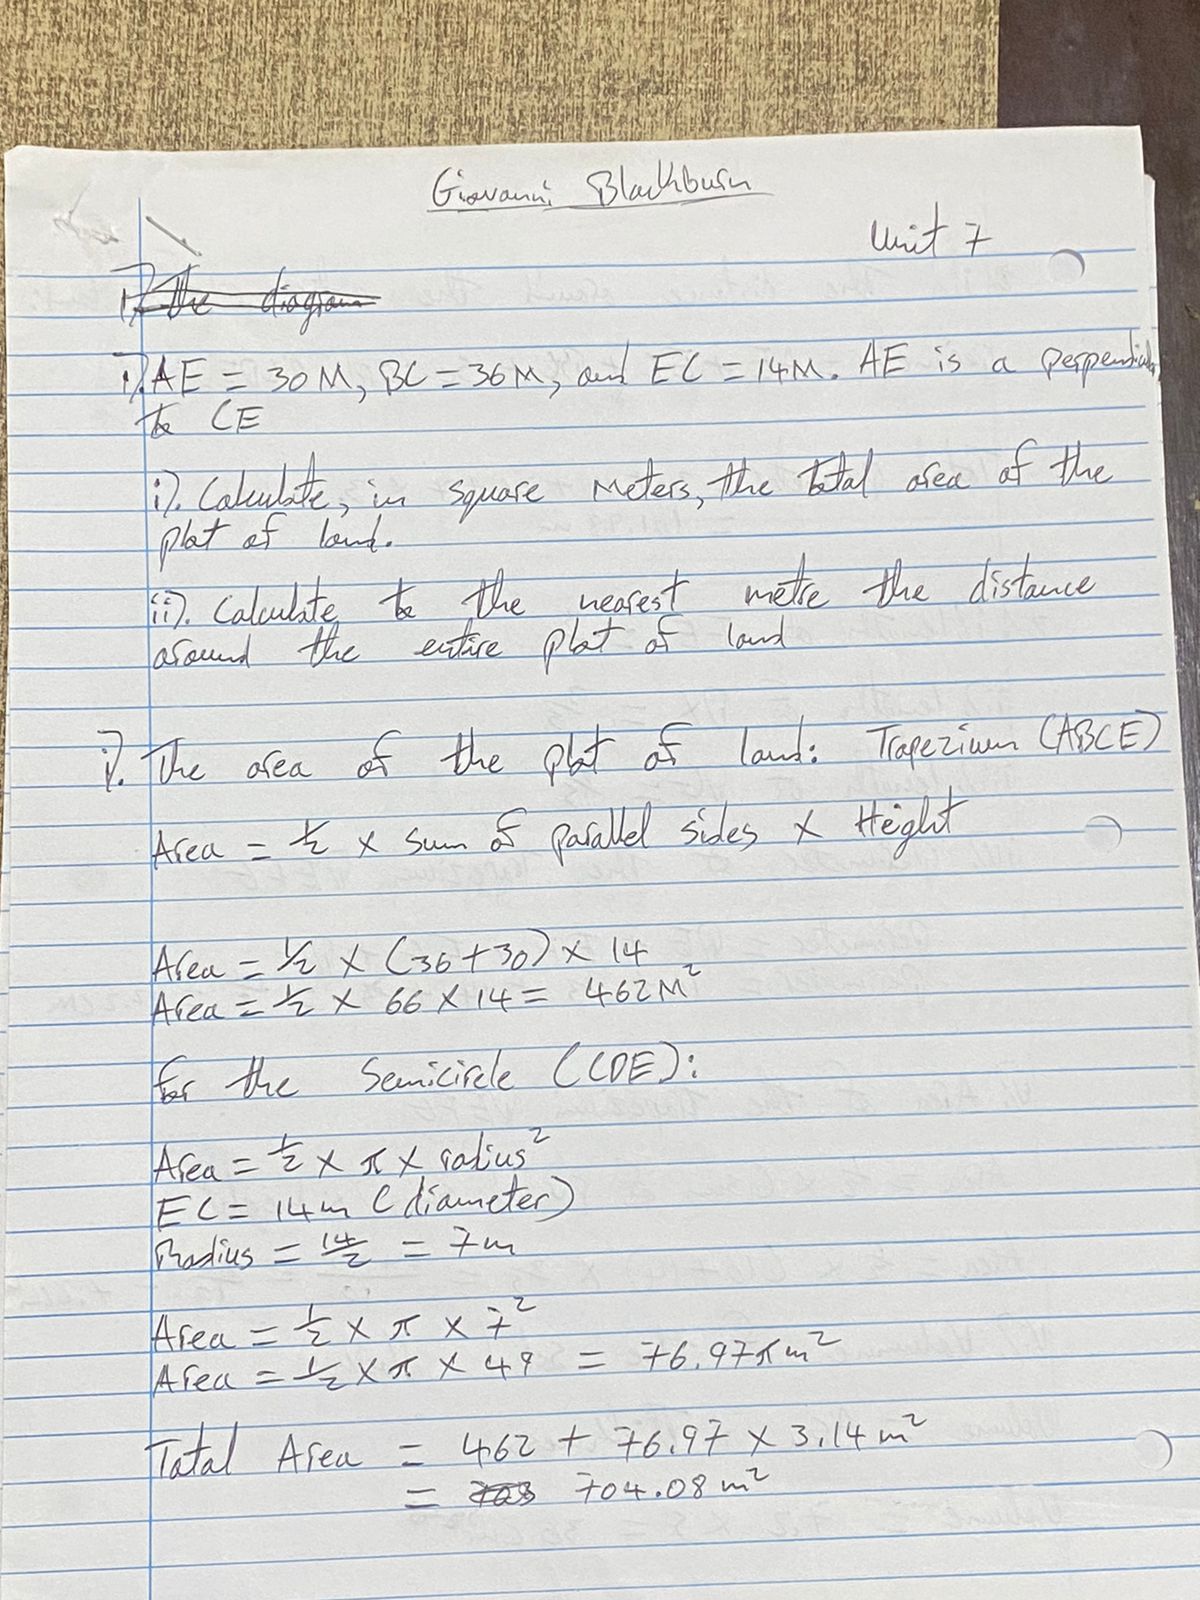 Giovanni Blackburn
Unit 7
1). the diagram
1). AE = 30M, BC = 36M, and EC = 14M. AE is a perpendicular
to CE
i). Calculate, in square Meters, the total area of the
plot of land.
ii). Calculate to the nearest metre the distance
around the entire plot of land
i). The area of the plot of land: Trapezium (ABCE)
Area = 1/2 × sum of parallel sides × Height
Area = 1/2 × (36+30) × 14
Area = 1/2 × 66 × 14 = 462M²
for the Semicircle (CDE):
Area = 1/2 × π × radius²
EC = 14m (diameter)
Radius = 14/2 = 7m
Area = 1/2 × π × 7²
Area = 1/2 × π × 49 = 76.97πm²
Total Area = 462 + 76.97 × 3.14m²
= 704.08m²